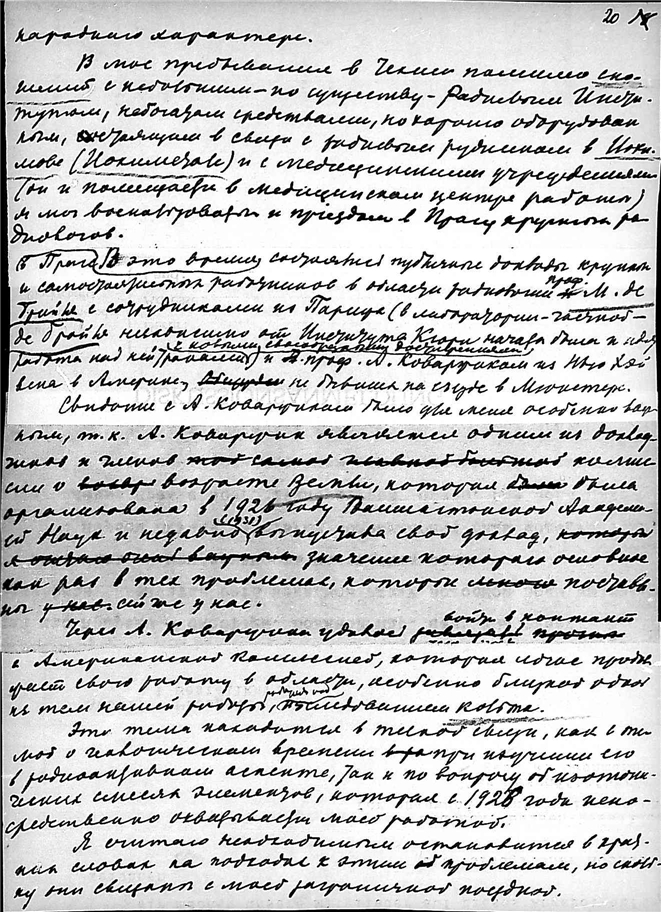 20
народного характера.
В мое пребывание в Чехии помимо сно-
шений с небольшим – по существу – Радиевым Инсти-
тутом, небогатым средствами, но хорошо оборудован
ным, стоящим в связи с радиевым рудником в Иохи-
мове (Иохимстале) и с медицинскими учреждениями
(он и помещается в медицинском центре работы)
я мог воспользоваться и приездом в Прагу крупных ра
диологов.
В Праге В это время состоялись публичные доклады крупных
и самостоятельных работников в области радиологии проф. М. де
Бройля с сотрудниками из Парижа (в лаборатории – частной –
де Бройля независимо от Института Кюри начата была и идет
работа над ней
с новыми своеобразными достижениями,
и проф. А. Коваржиком из Нью Хэй
вена в Америке, не бывших на съезде в Мюнстере.
Свидание с А. Коваржиком было для меня особенно важ
ным, т.к. А. Коваржик является одним из доклад
чиков и членов той самой комис
сии о возрасте Земли, которая была была
организована в 1926 году Вашингтонской Академи
ей Наук и недавно (1931) выпустила свой доклад, который
значение которого основное
как раз в тех проблемах, которые много поставле
ны у нас. сейчас у нас.
Через А. Коваржика удалось войти в контакт
с Американской Комиссией, которая сейчас продол
жает свою работу в области, особенно близкой одной
из тем нашей работы, исследованием кольта.
Эта тема находится в тесной связи, как с те
мой о геологическом времени при изучении его
в радиоактивном аспекте, так и по вопросу об изотопи-
ческих смесях элементов, которая с 1926 года непо-
средственно охватывается моей работой.
Я считаю необходимым остановиться в крат-
ких словах на подходах к этим проблемам, поскол-
ку они связаны с моей заграничной поездкой.